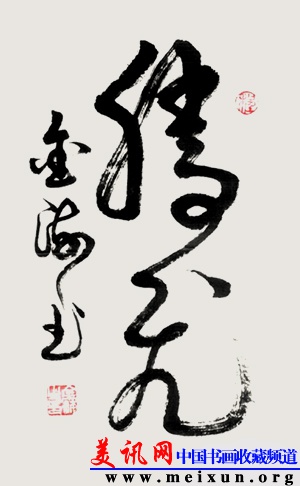 腾飞
金海书
美讯网 中国书画收藏频道
www.meixun.org